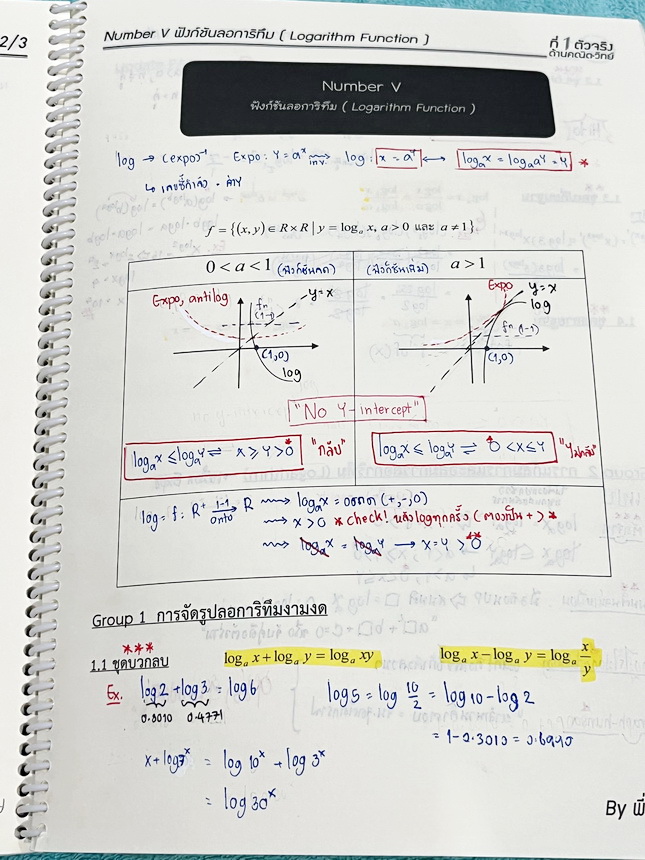 2/3
Number V ฟังก์ชันลอการิทึม ( Logarithm Function )
ที่ 1 ตัวจริง
ด้านคณิต-วิทย์
Number V
ฟังก์ชันลอการิทึม ( Logarithm Function )
log → (expo)⁻¹ Expo : y = aˣ ⟿ inv. log : x = aʸ ⟷ logₐx = logₐaʸ = y *
f = {(x, y) ∈ R × R | y = logₐ x, a > 0 และ a ≠ 1}
0 < a < 1 (ฟังก์ชันลด) (ฟังก์ชันเพิ่ม) a > 1
Expo, antilog fn (1-1) y=x (1,0) log
Expo y=x log fn (1-1) (1,0)
"No Y-intercept"
logₐx ≤ logₐy ⇌ x ≥ y > 0 * "กลับ" logₐx ≤ logₐy ⇌ 0 < x ≤ y "ไม่กลับ"
log = f : R⁺ 1-1 → onto R ⟿ logₐx = อะไรก็ได้ (+,-,0)
⟿ x > 0 * check! หลัง log ทุกครั้ง (ต้องเป็น +) *
⟿ logₐx = logₐy → x = y > 0 **
Group 1 การจัดรูปลอการิทึมงามงด
1.1 ชุดบวกลบ *** logₐ x + logₐ y = logₐ xy logₐ x − logₐ y = logₐ x/y
Ex. log2 + log3 = log6 log5 = log 10/2 = log10 - log2
0.3010 0.4771 = 1-0.3010 = 0.6990
x + log7ˣ = log10ˣ + log3ˣ
= log30ˣ
By พี่